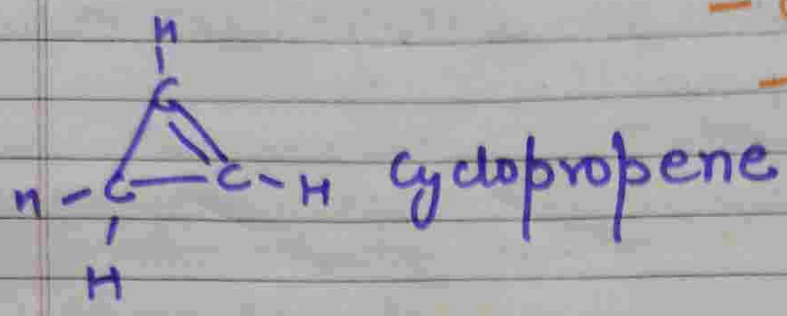 H
C
H - C - C - H Cyclopropene
H